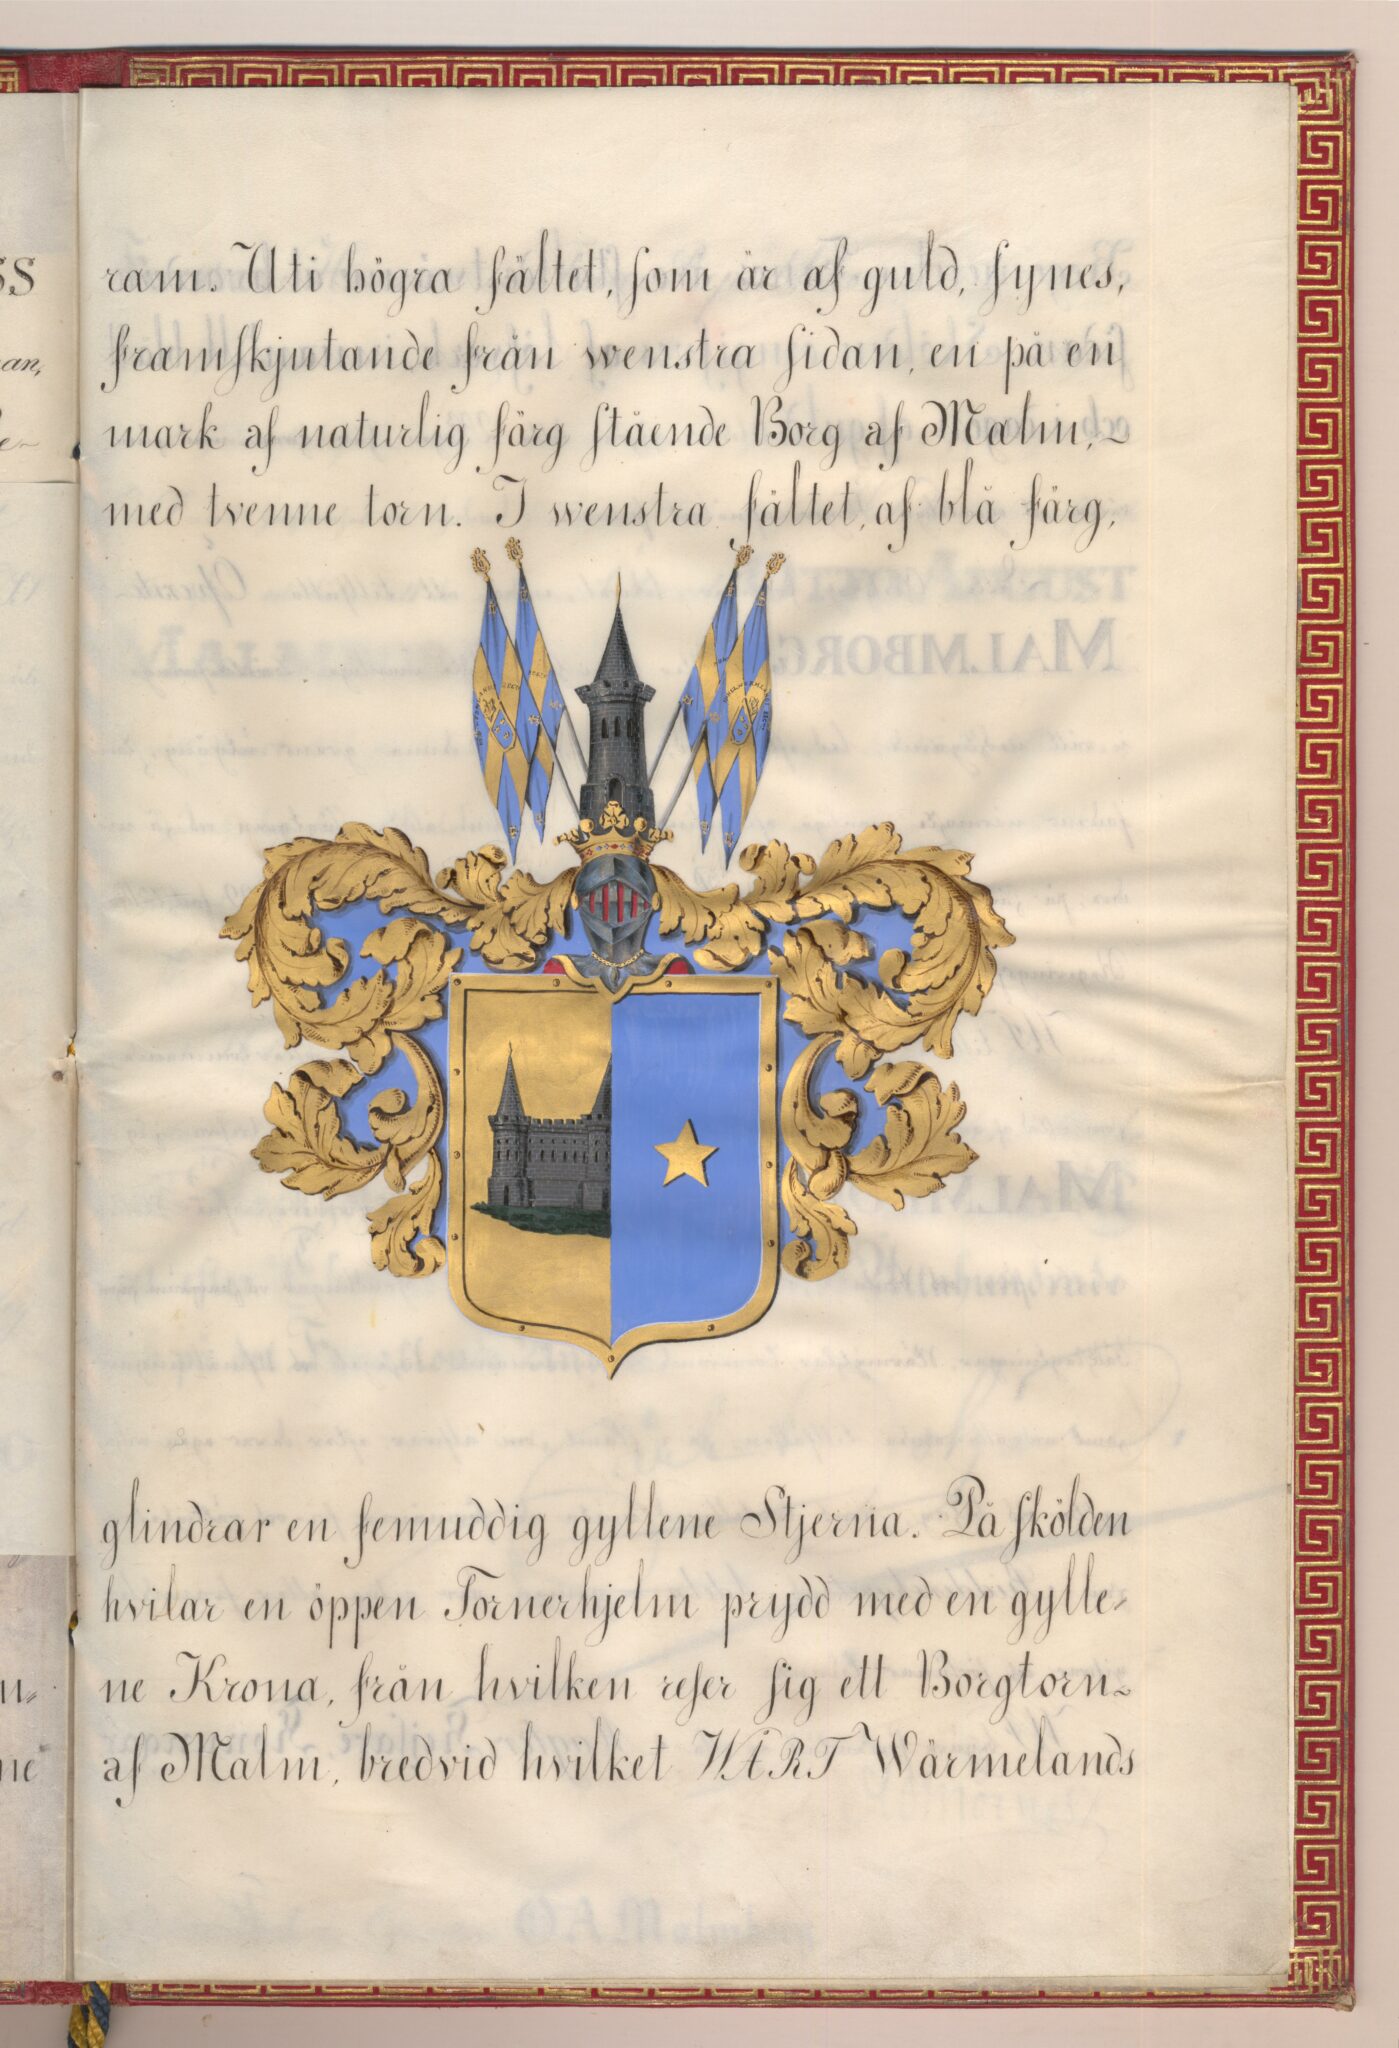 ram. Uti högra fältet, som är af guld, synes,
framskjutande från wenstra sidan, en på en
mark af naturlig färg stående Borg af Malm,~
med tvenne torn. I wenstra fältet, af blå färg,
glindrar en femuddig gyllene Stjerna. På skölden
hvilar en öppen Tornerhjelm prydd med en gylle=
ne Krona, från hvilken reser sig ett Borgtorn~
af Malm, bredvid hvilket WÅRT Wärmelands